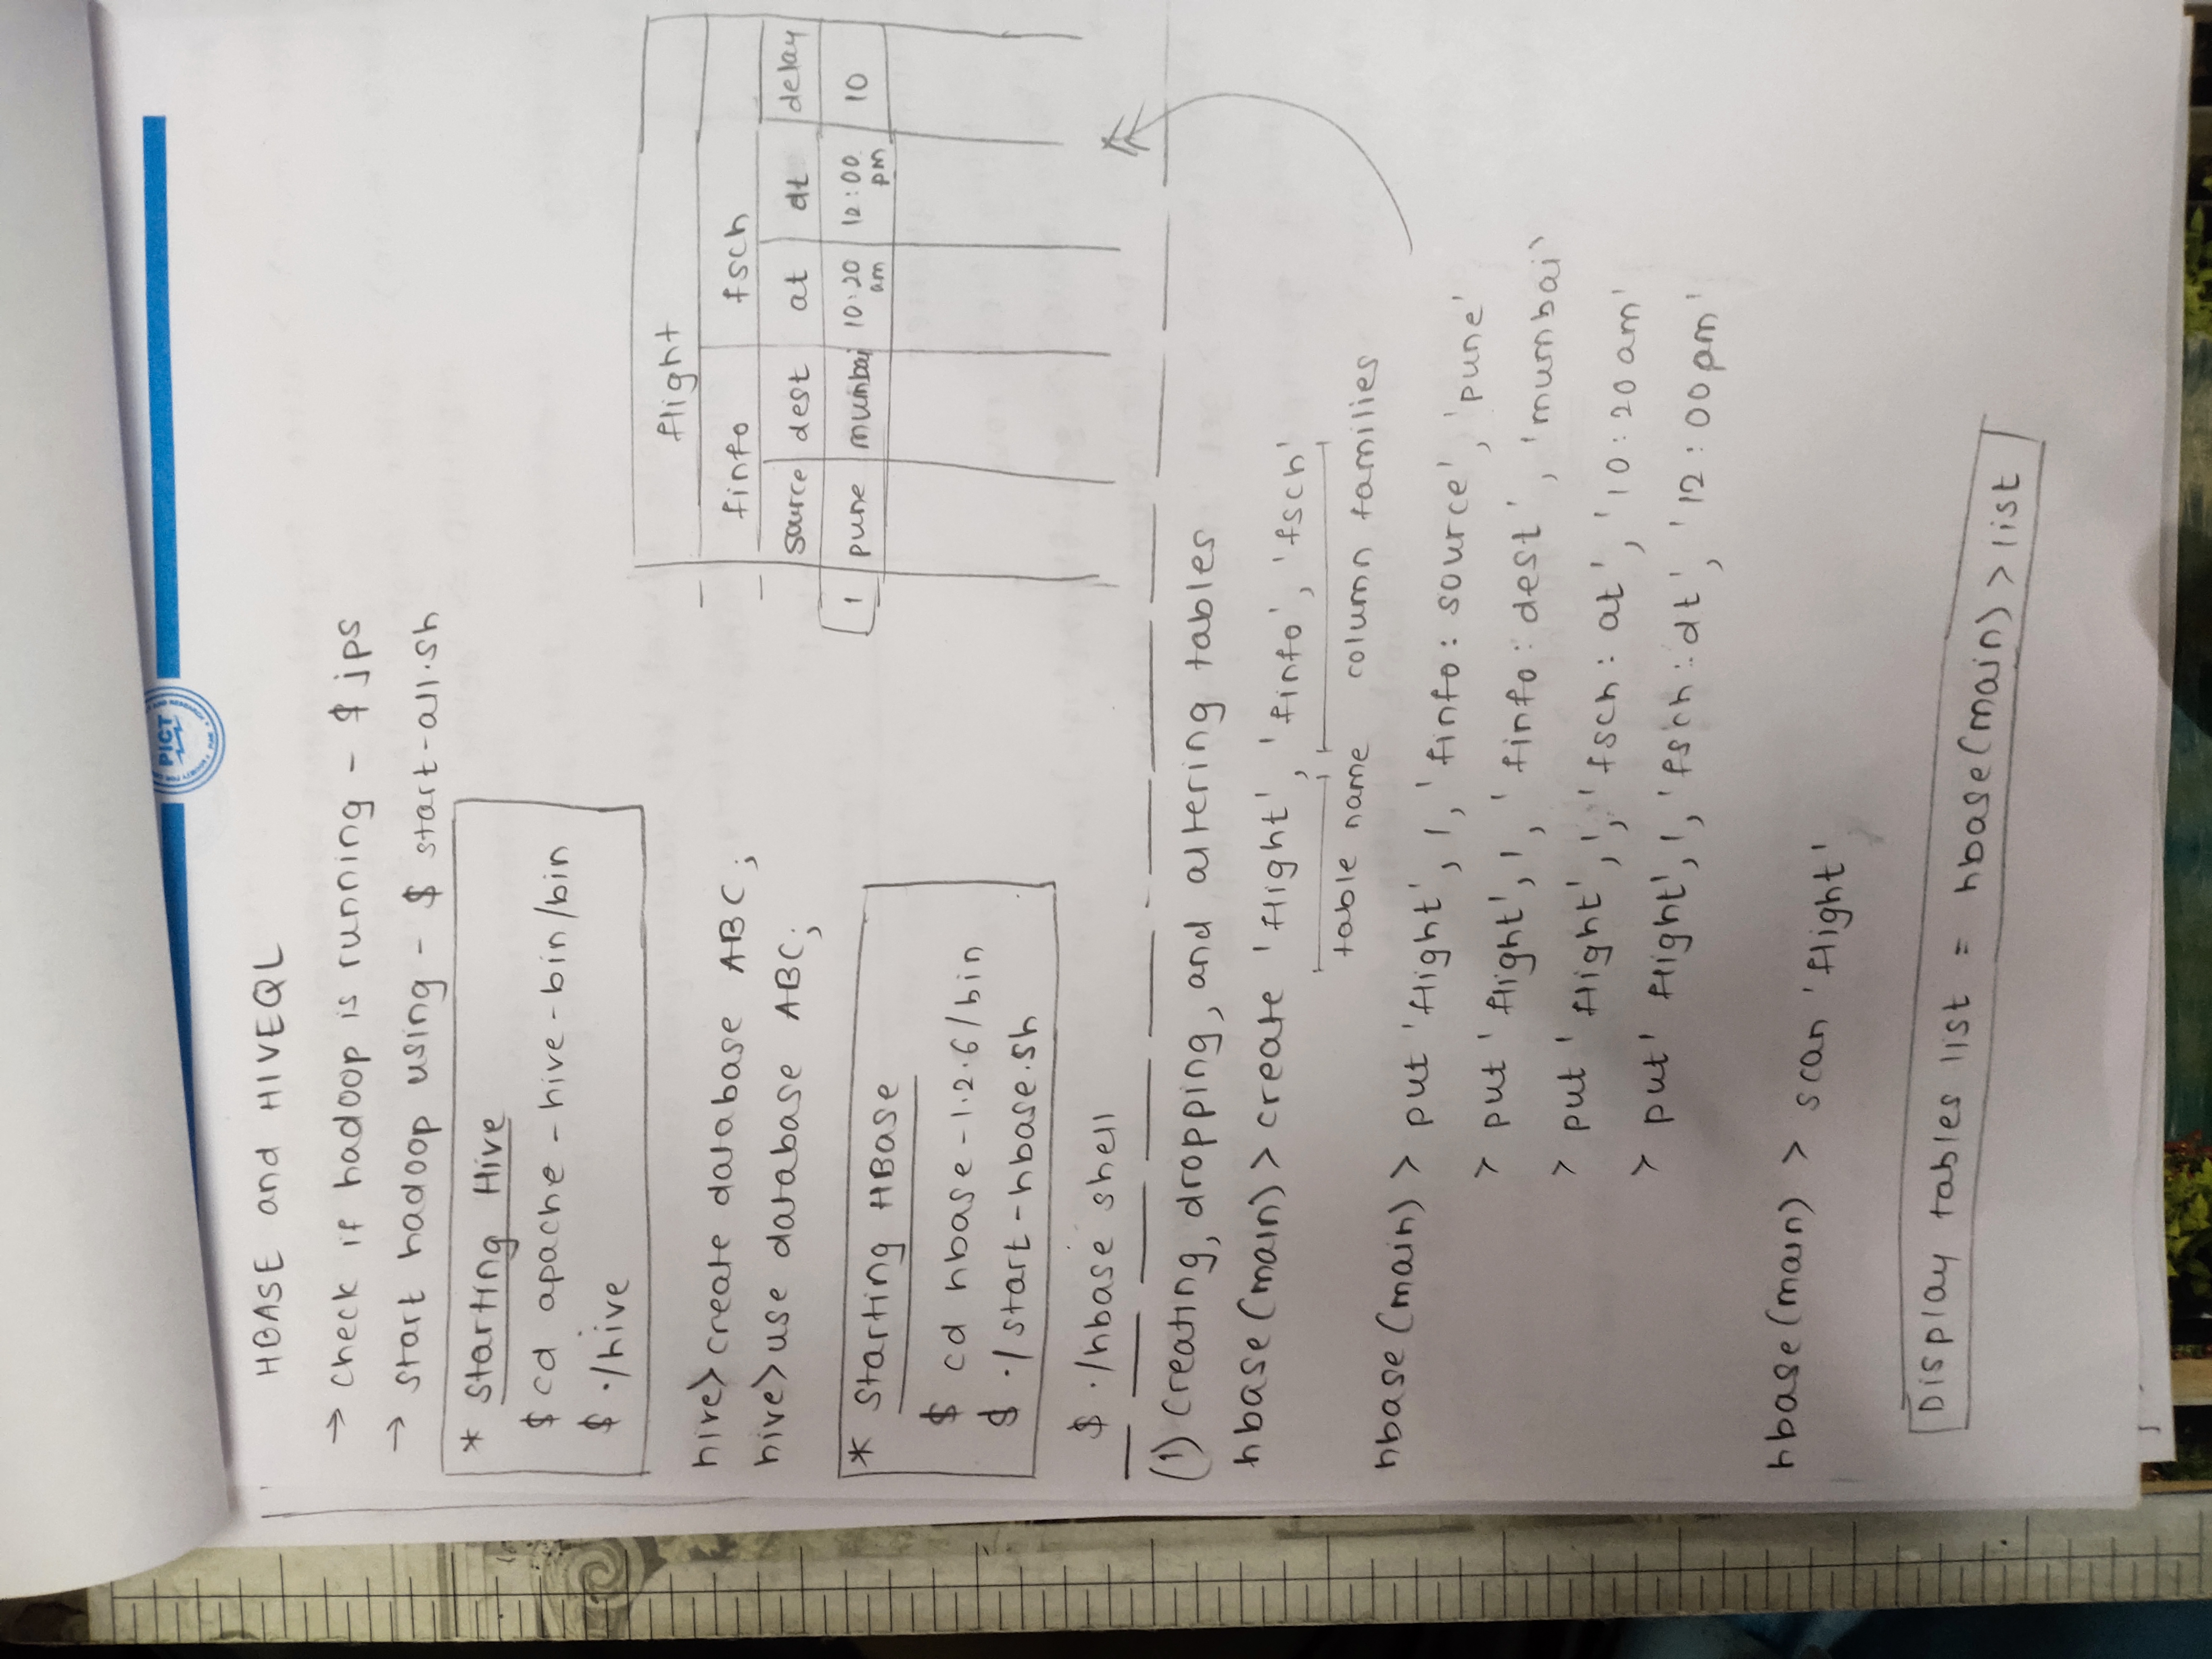 PICT
HBASE and HIVEQL
→ check if hadoop is running - $ jps
→ start hadoop using - $ start-all.sh
* Starting Hive
$ cd apache-hive-bin/bin
$ ./hive
hive> create database ABC;
hive> use database ABC;
flight
finfo fsch
source dest at dt delay
1 pune mumbai 10:20 am 12:00 pm 10
* Starting HBase
$ cd hbase-1.2.6/bin
$ ./start-hbase.sh
$ ./hbase shell
(1) Creating, dropping, and altering tables
hbase(main) > create 'flight', 'finfo', 'fsch'
table name column families
hbase(main) > put 'flight', 1, 'finfo: source', 'pune'
> put 'flight', 1, 'finfo: dest', 'mumbai'
> put 'flight', 1, 'fsch: at', '10:20am'
> put 'flight', 1, 'fsch:dt', '12:00pm'
hbase(main) > scan 'flight'
Display tables list = hbase(main) > list